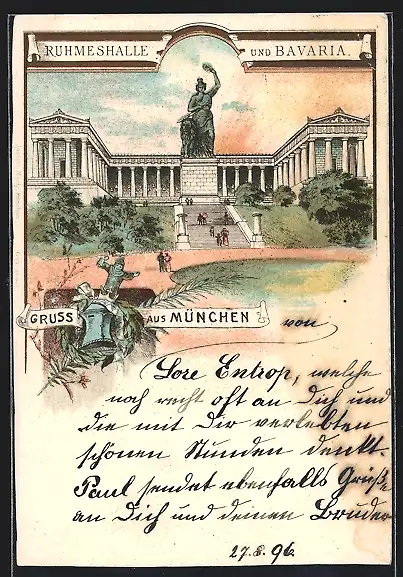 RUHMESHALLE UND BAVARIA.
GRUSS AUS MÜNCHEN
von
Lore Entrop, welche
noch recht oft an Dich und
die mit Dir verlebten
schönen Stunden denkt.
Paul sendet ebenfalls Grüße
an Dich und deinen Bruder
27.8.96